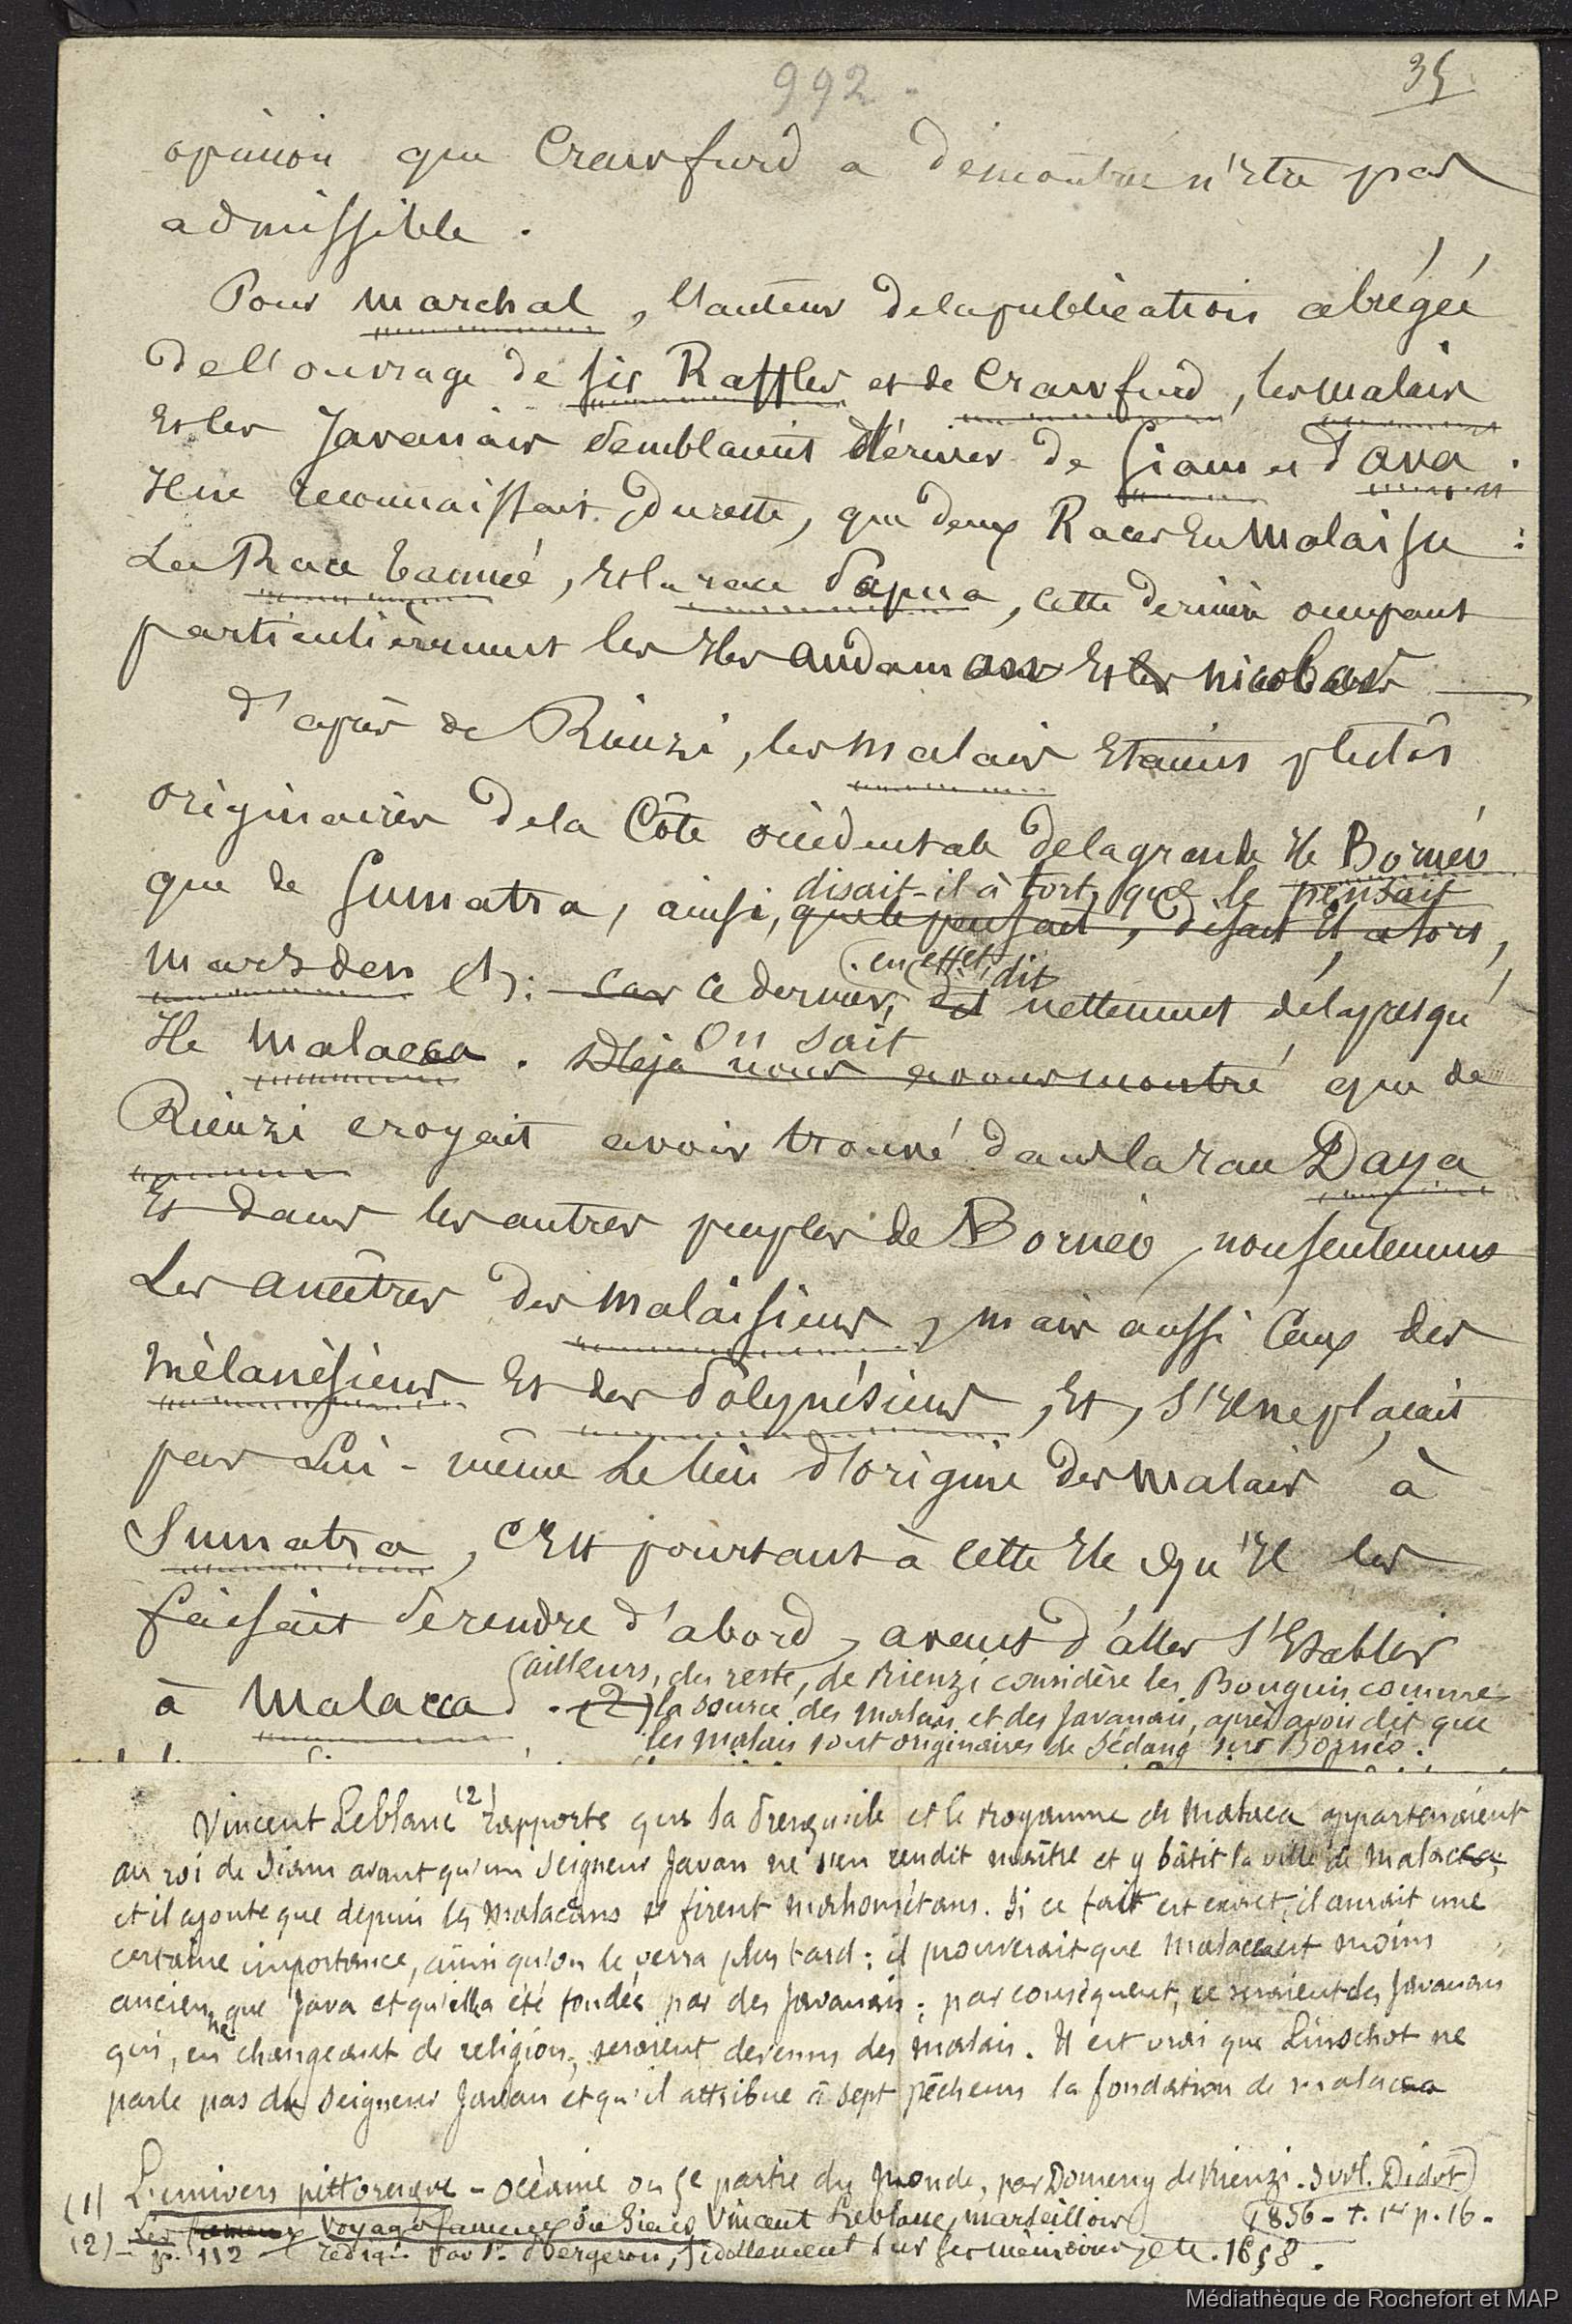 992.
35
opinion que Crawfurd a démontrée n'être pas
admissible.
Pour Marchal, l'auteur de la publication abrégée
de l'ouvrage de Sir Raffles et de Crawfurd, les malais
Et les Javanais semblaient dériver de Siam et d'ava.
Il ne reconnaissait, du reste, que deux Races En Malaisie :
La Race tannée, Et la race Papua, cette dernière occupant
particulièrement les Iles andaman Et les nicobar
d'après de Rienzi, les malais Etaient plutôt
originaires de la Côte occidentale de la grande Ile Bornéo
que de Sumatra, ainsi, que le pensait, disait Il à tort,
disait-il à tort, que le pensait
Marsden (1) : car ce dernier, dit nettement de la presqu'
(en effet, dit
Ile Malacca. Déjà nous avons montré que de
On sait
Rienzi croyait avoir trouvé dans la race Daya
Et dans les autres peuples de Bornéo, non seulement
Les ancêtres des Malaisiens, mais aussi Ceux des
Mélanésiens Et des Polynésiens, Et, s'Il ne plaçait
pas Lui-même Le lieu d'origine des Malais à
Sumatra, c'Est pourtant à cette Ile qu'Il les
faisait se rendre d'abord, avant d'aller s'Etablir
à Malacca. (2)
ailleurs, du reste, de Rienzi considère les Bouguis comme
la source des Malais et des Javanais, après avoir dit que
les Malais sont originaires de Sédang sur Bornéo.
Vincent Leblanc (2) rapporte que la Presqu'ile et le Royaume de Malaca appartenaient
au roi de Siam avant qu'un Seigneur Javan ne s'en rendit maître et y bâtit la ville de Malacca,
et il ajoute que depuis les Malacans se firent Mahométans. Si ce fait est exact, il aurait une
certaine importance, ainsi qu'on le verra plus tard : il prouverait que Malacca est moins
ancienne que Java et qu'elle a été fondée par des Javanais ; par conséquent, ce seraient des Javanais
qui, en changeant de religion, seraient devenus des Malais. Il est vrai que Linschot ne
parle pas du Seigneur Javan et qu'il attribue à sept pêcheurs la fondation de Malacca
(1) L'univers pittoresque - Océanie ou 5e partie du Monde, par Domeny de Rienzi. 3 vol. Didot
1836 - t. 1er p. 16.
(2) - Les fameux Voyages fameux du Sieur Vincent Leblanc, marseillois
p. 112 rédigés par P. Bergeron, fidellement sur ses mémoires, etc. 1658.
Médiathèque de Rochefort et MAP